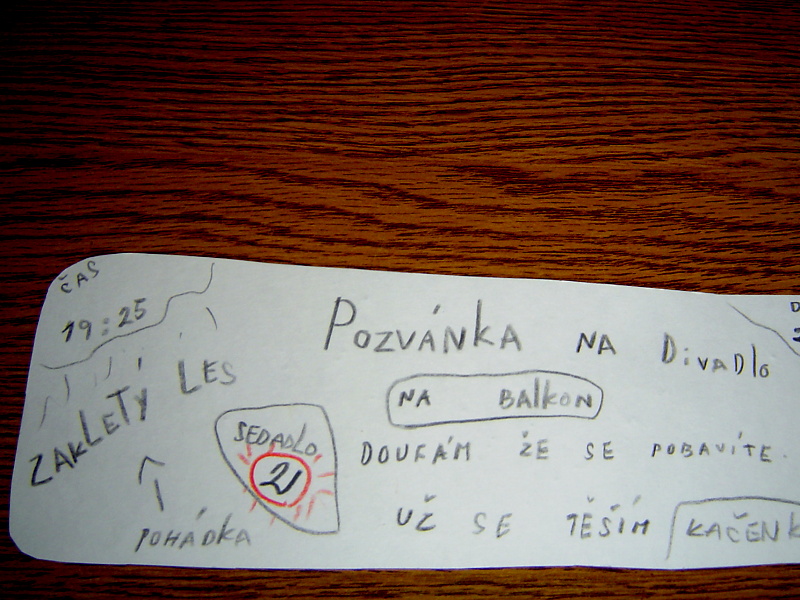 ČAS
19:25
ZAKLETÝ LES
POHÁDKA
SEDADLO
21
POZVÁNKA NA DIVADLO
NA BALKON
DOUFÁM ŽE SE POBAVÍTE.
UŽ SE TĚŠÍM KAČENK